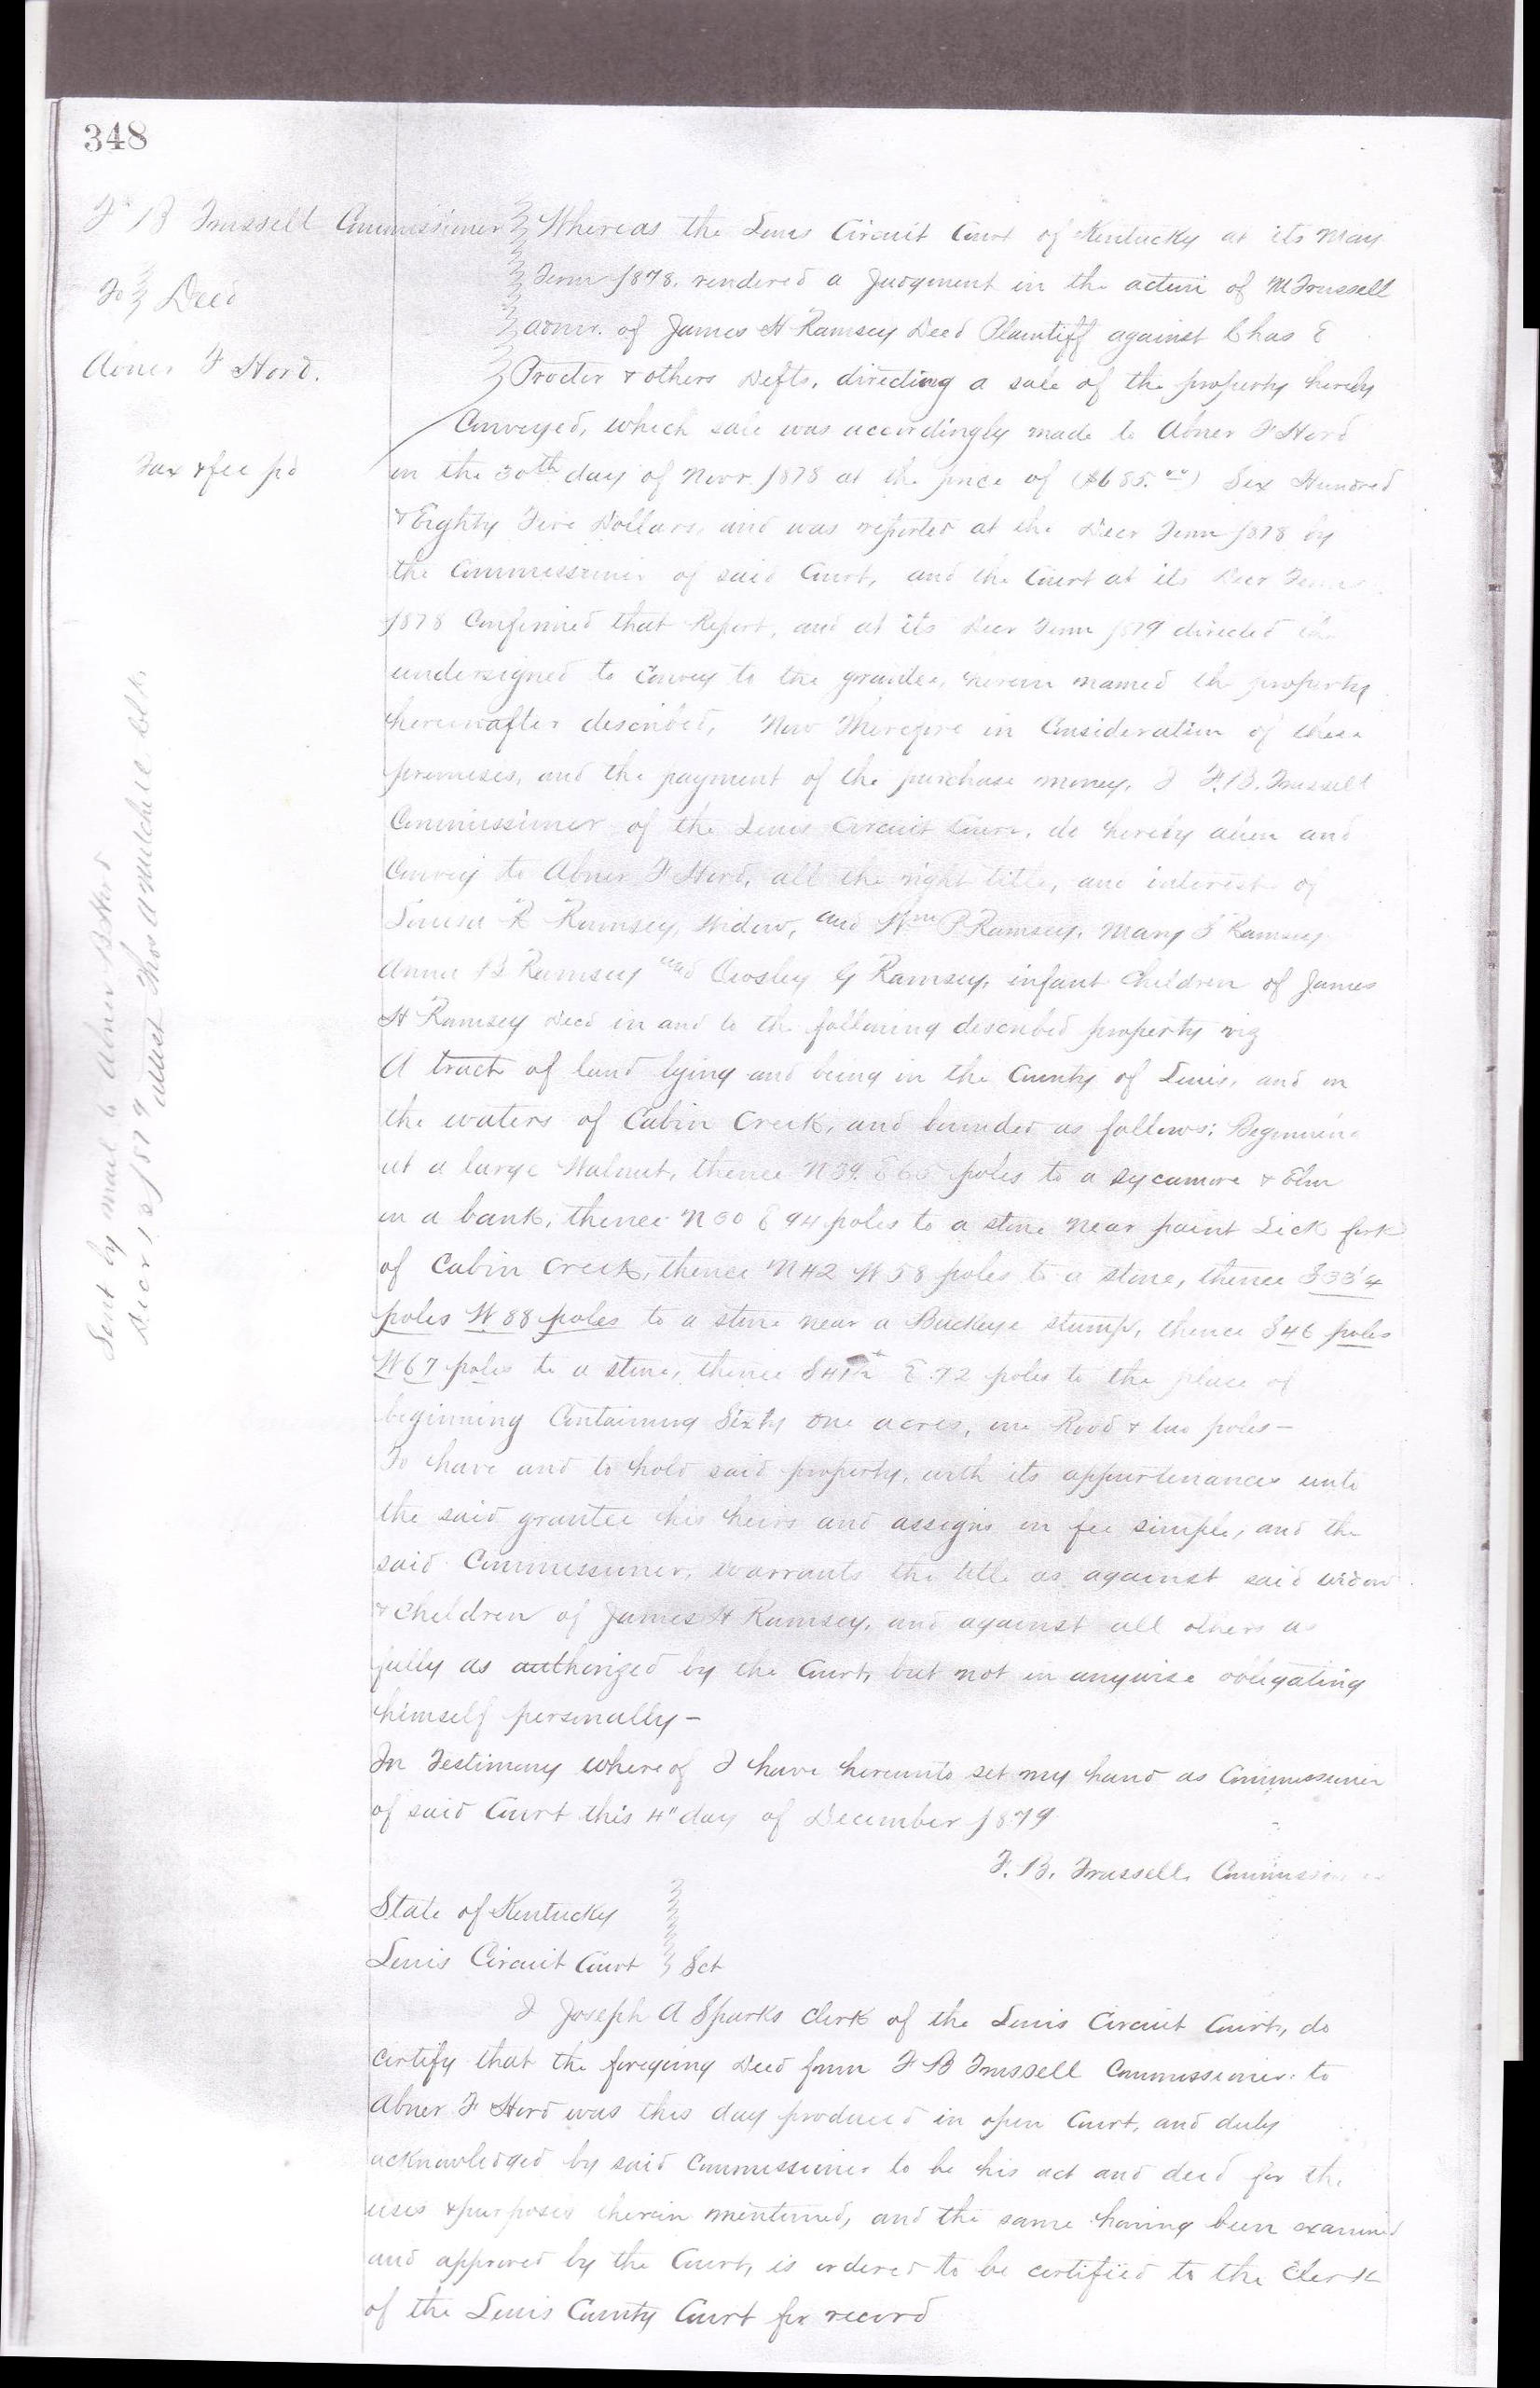 348
F B Trussell Commissioner
To Deed
Abner F Hord.
Tax & fee pd
Sent by mail to Abner B Hord
Decr 12 1879 attest Thos A Mitchell Clk
Whereas the Lewis Circuit Court of Kentucky at its May
Term 1878. rendered a Judgment in the action of M Trussell
admr. of James H Ramsey Decd Plaintiff against Chas E
Proctor & others Defts. directing a sale of the property hereby
Conveyed, which sale was accordingly made to Abner F Hord
on the 30th day of Novr 1878 at the price of ($685.00) Six Hundred
& Eighty Five Dollars, and was reported at the Decr Term 1878 by
the Commissioner of said Court, and the Court at its Decr Term
1878 Confirmed that Report, and at its Decr Term 1879 directed the
undersigned to Convey to the grantee, herein named the property
hereinafter described, Now Therefore in Consideration of these
premises, and the payment of the purchase money, I F. B. Trussell
Commissioner of the Lewis Circuit Court, do hereby alien and
Convey to Abner F Hord, all the right title, and interest of
Louisa R Ramsey, Widow, and Wm P Ramsey, Mary S Ramsey
Anna B Ramsey and Crosley G Ramsey, infant Children of James
H Ramsey Decd in and to the following described property viz
A tract of land lying and being in the County of Lewis, and on
the waters of Cabin Creek, and bounded as follows: Beginning
at a large Walnut, thence N 39. E 65 poles to a sycamore & Elm
on a bank, thence N 30 E 94 poles to a stone near paint Lick fork
of Cabin Creek, thence N 42 W 58 poles to a stone, thence S 33 1/4
poles W 88 poles to a stone near a Buckeye stump, thence S 46 poles
W 67 poles to a stone, thence S 41 1/2 E 72 poles to the place of
beginning Containing Sixty one acres, one Rood & two poles—
To have and to hold said property, with its appurtenances unto
the said grantee his heirs and assigns in fee simple, and the
said Commissioner, warrants the title as against said widow
& Children of James H Ramsey, and against all others as
fully as authorized by the Court, but not in anywise obligating
himself personally—
In Testimony whereof I have hereunto set my hand as Commissioner
of said Court this 4" day of December 1879
F. B. Trussell Commissioner
State of Kentucky
Lewis Circuit Court Sct
I Joseph A Sparks Clerk of the Lewis Circuit Court, do
certify that the foregoing Deed from F B Trussell Commissioner to
Abner F Hord was this day produced in open Court, and duly
acknowledged by said Commissioner to be his act and deed for the
uses & purposes therein mentioned, and the same having been examined
and approved by the Court, is ordered to be certified to the Clerk
of the Lewis County Court for record